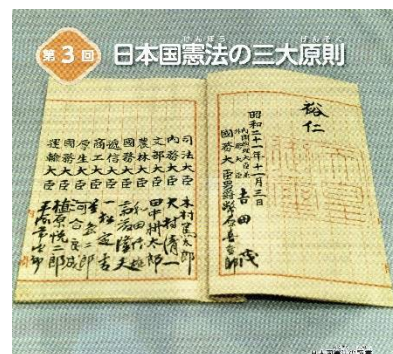 第3回 日本国憲法の三大原則
けんぽう げんそく
裕仁
昭和二十一年十一月三日
内閣総理大臣兼
外務大臣 吉田茂
國務大臣 男爵 幣原喜重郎
司法大臣 木村篤太郎
内務大臣 大村清一
文部大臣 田中耕太郎
農林大臣 和田博雄
國務大臣 斎藤隆夫
逓信大臣 一松定吉
商工大臣 星島二郎
厚生大臣 河合良成
國務大臣 植原悦二郎
運輸大臣 平塚常次郎